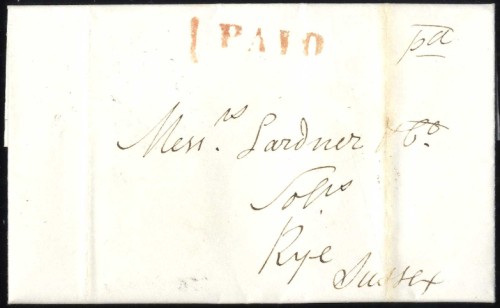 1 PAID
pd
Messrs. Lardner & Co.
Solrs
Rye
Sussex